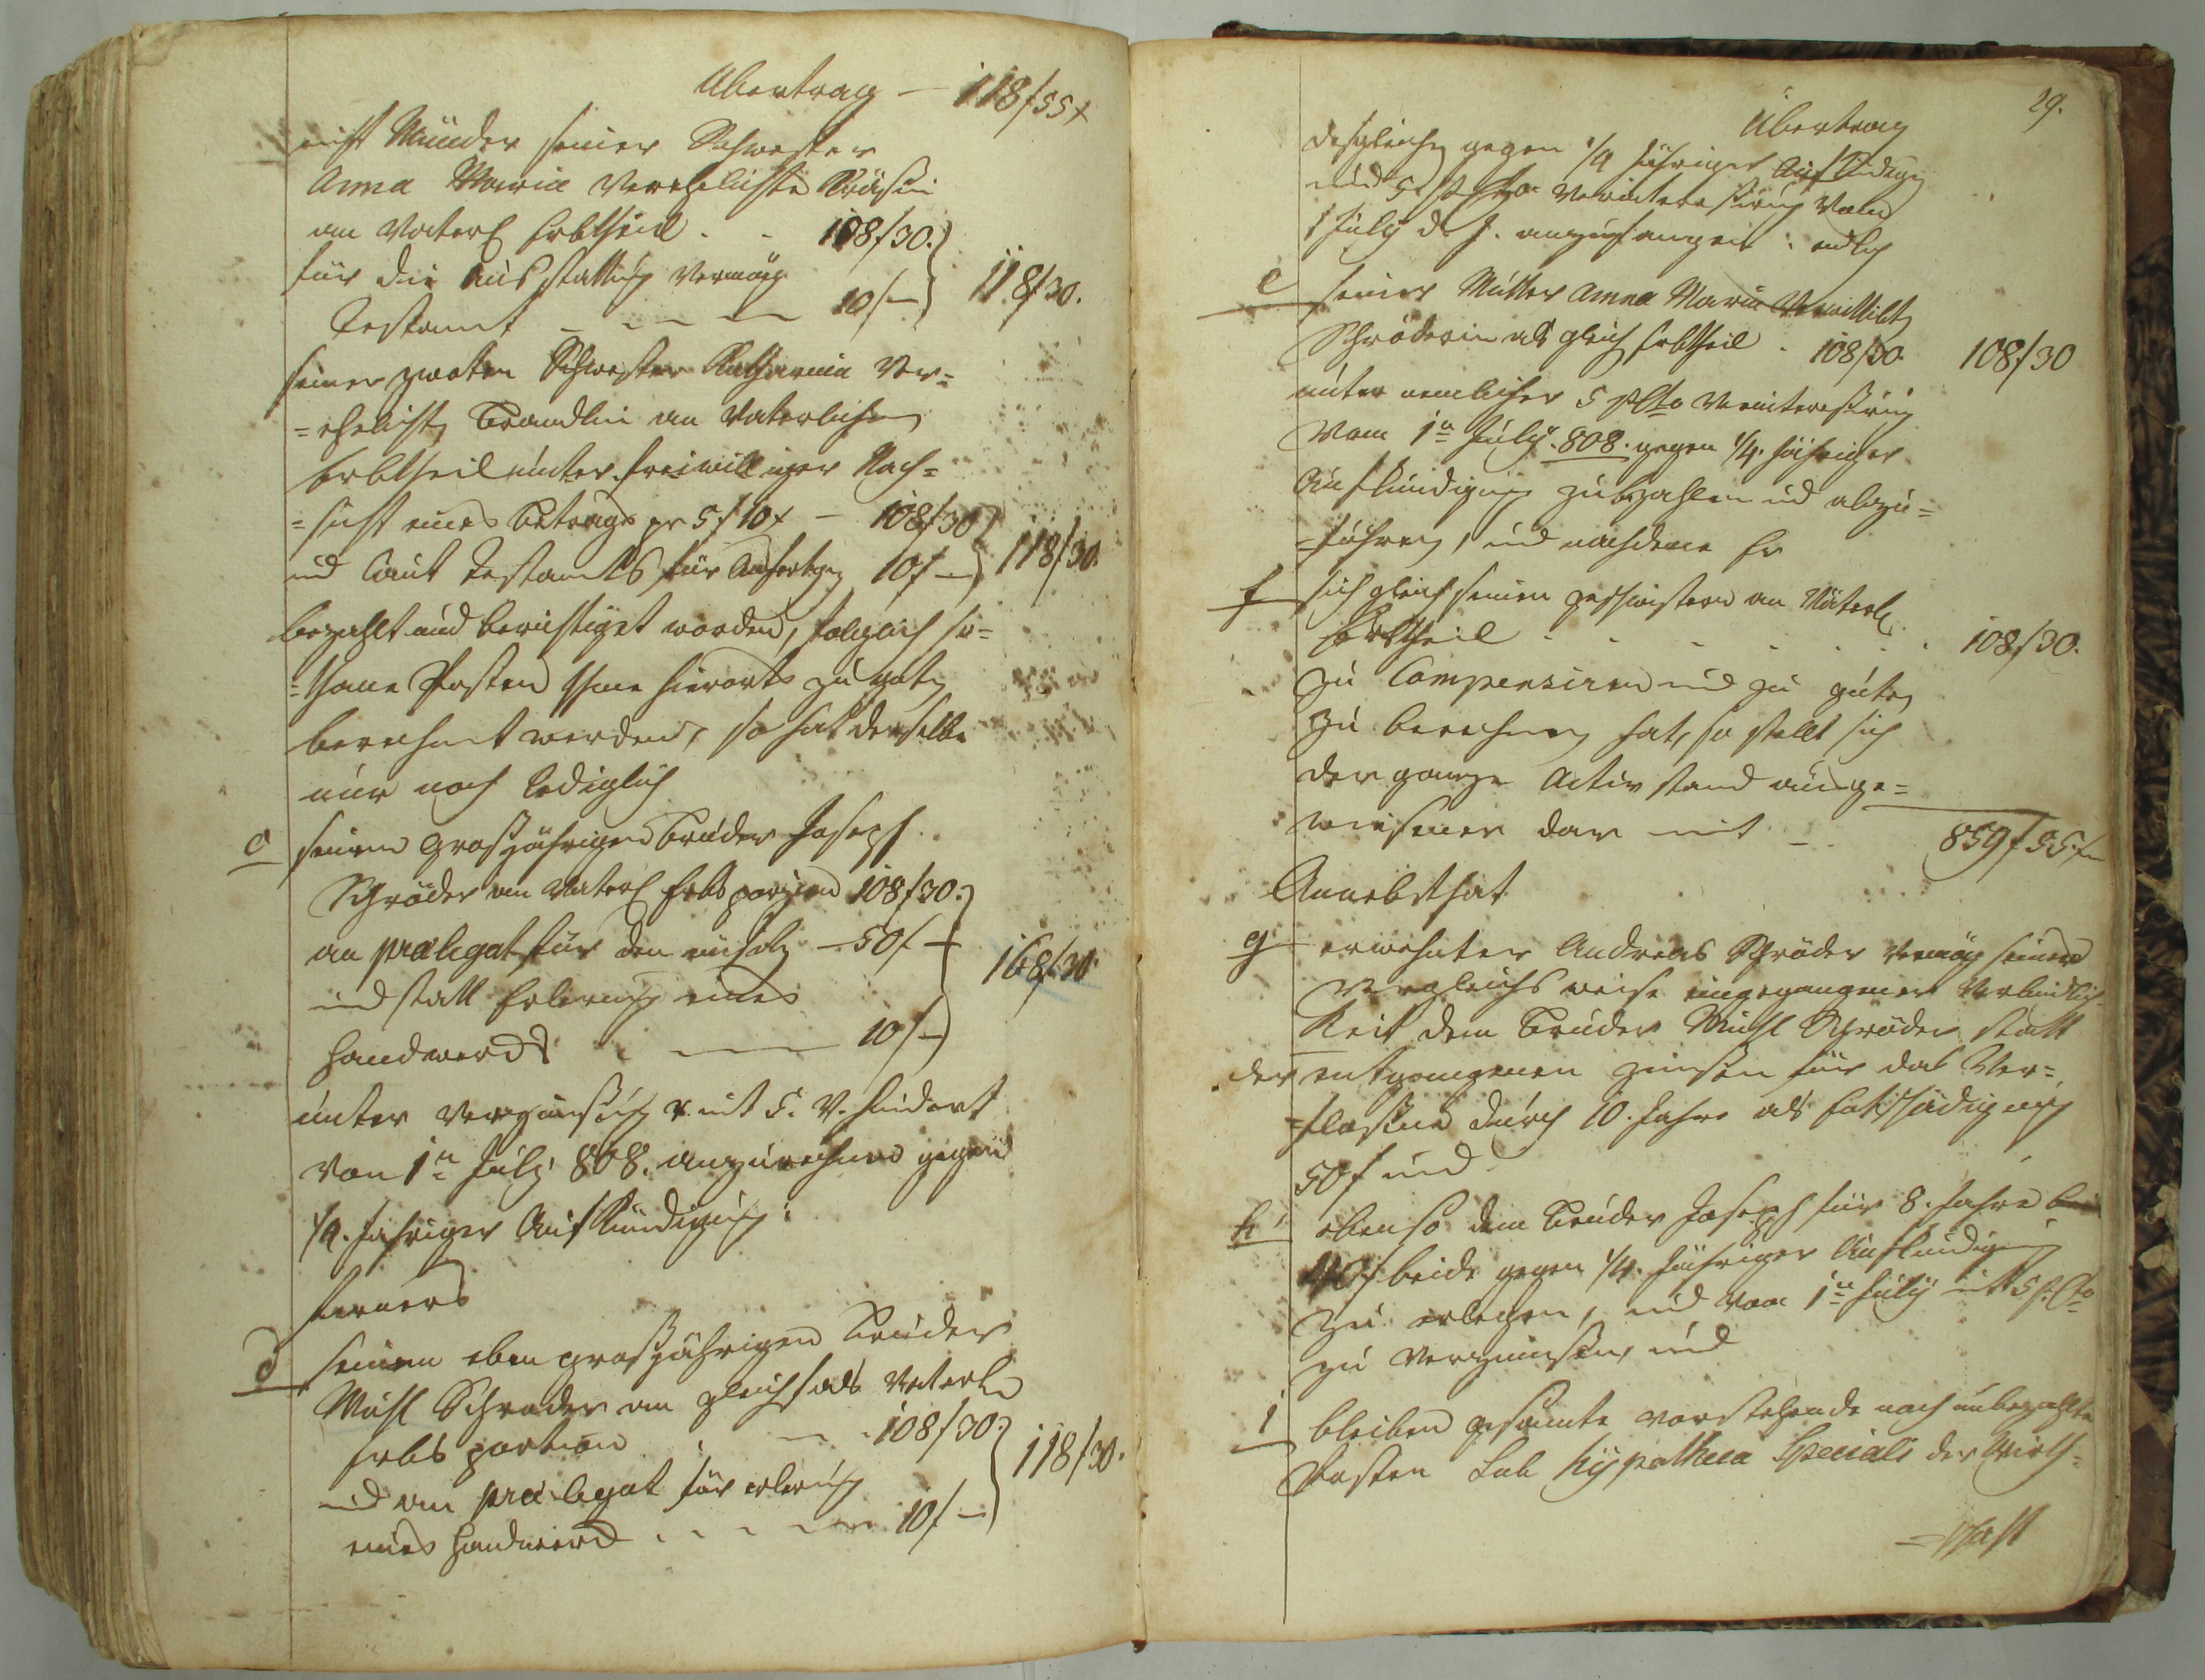 Übertrag — 118f 55x
nicht minder seiner Schwester
Anna Maria verehelichte
am Vaterl Erbtheil . . 108f 30.
für die Ausstattung vermög
Testament — — — 10f — 118f 30.
seiner zwoten Schwester Katharina Ver=
=ehelicht Brandlin an Vaterlichen
Erbtheil unter freiwilliger Nach=
=sicht eines Betrags pr 5f 10x — 108f 30
und laut Testaments für Ausfertgg 10f — 118f 30.
bezahlt und berichtiget worden, folglich so=
=thane Posten Ihme hierorts zu guten
berechnet werden, so hat derselbe
nur noch lediglich
c seinem großjährigen Bruder Joseph
Schröder an Vaterl Erbsporzion 108f 30.
an prælegat für den — 50f —
und statt Erlernung eines 168f 30.
Handwerks . — 10f —
unter Verzinsung mit 5. v. Hundert
von 1n July 808. anzurechnen gegen
1/4. jähriger Aufkündigung:
ferners
d seinem eben großjährigen Bruder
Michl Schröder an gleichfals Vaterln
Erbsportion . — . 108f 30.
und an prælegat für erlernung 118f 30.
eines Handwerks . . . . 10f —
29.
Übertrag
desgleichen gegen 1/4 jähriger Aufkündigg
und 5 pCto Verinteressirung vom
1 July d. J. anzufangen: endlich
e seiner Mutter Anna Maria Verwittibte
Schröderin als gleich Erbtheil . 108f 30 108f 30
unter nemlicher 5 pCto Verinteressirung
vom 1n July. 808. gegen 1/4. jähriger
Aufkündigung zu bezahlen und abzu=
=führen, und nachdeme Er
f sich gleich seinen geschwistern an Väterl
Erbtheil . . . . . . 108f 30.
zu Compensiren und zu guten
zu berechnen hat, so stellt sich
der ganze Activ stand
dar mit — . 859f 55x
Annebst hat
g erwehnter Andreas Schröder vermög seiner
Vergleichs weise eingegangener Verbindlich=
keit dem Bruder Michl Schröder statt
der entgangenen Zinsen für das Ver=
=flossene durch 10. Jahre als Entschädigung
50f und
h ebenso dem Bruder Joseph für 8. Jahre
40f beide gegen 1/4. jähriger Aufkündigung
zu erlegen, und vom 1n July mit 5 p. Cto
zu verzinsen, und
i bleiben gesamte vorstehende noch unbezahlte
Posten Sub hÿpotheca Speciali der Wirth=
=schaft